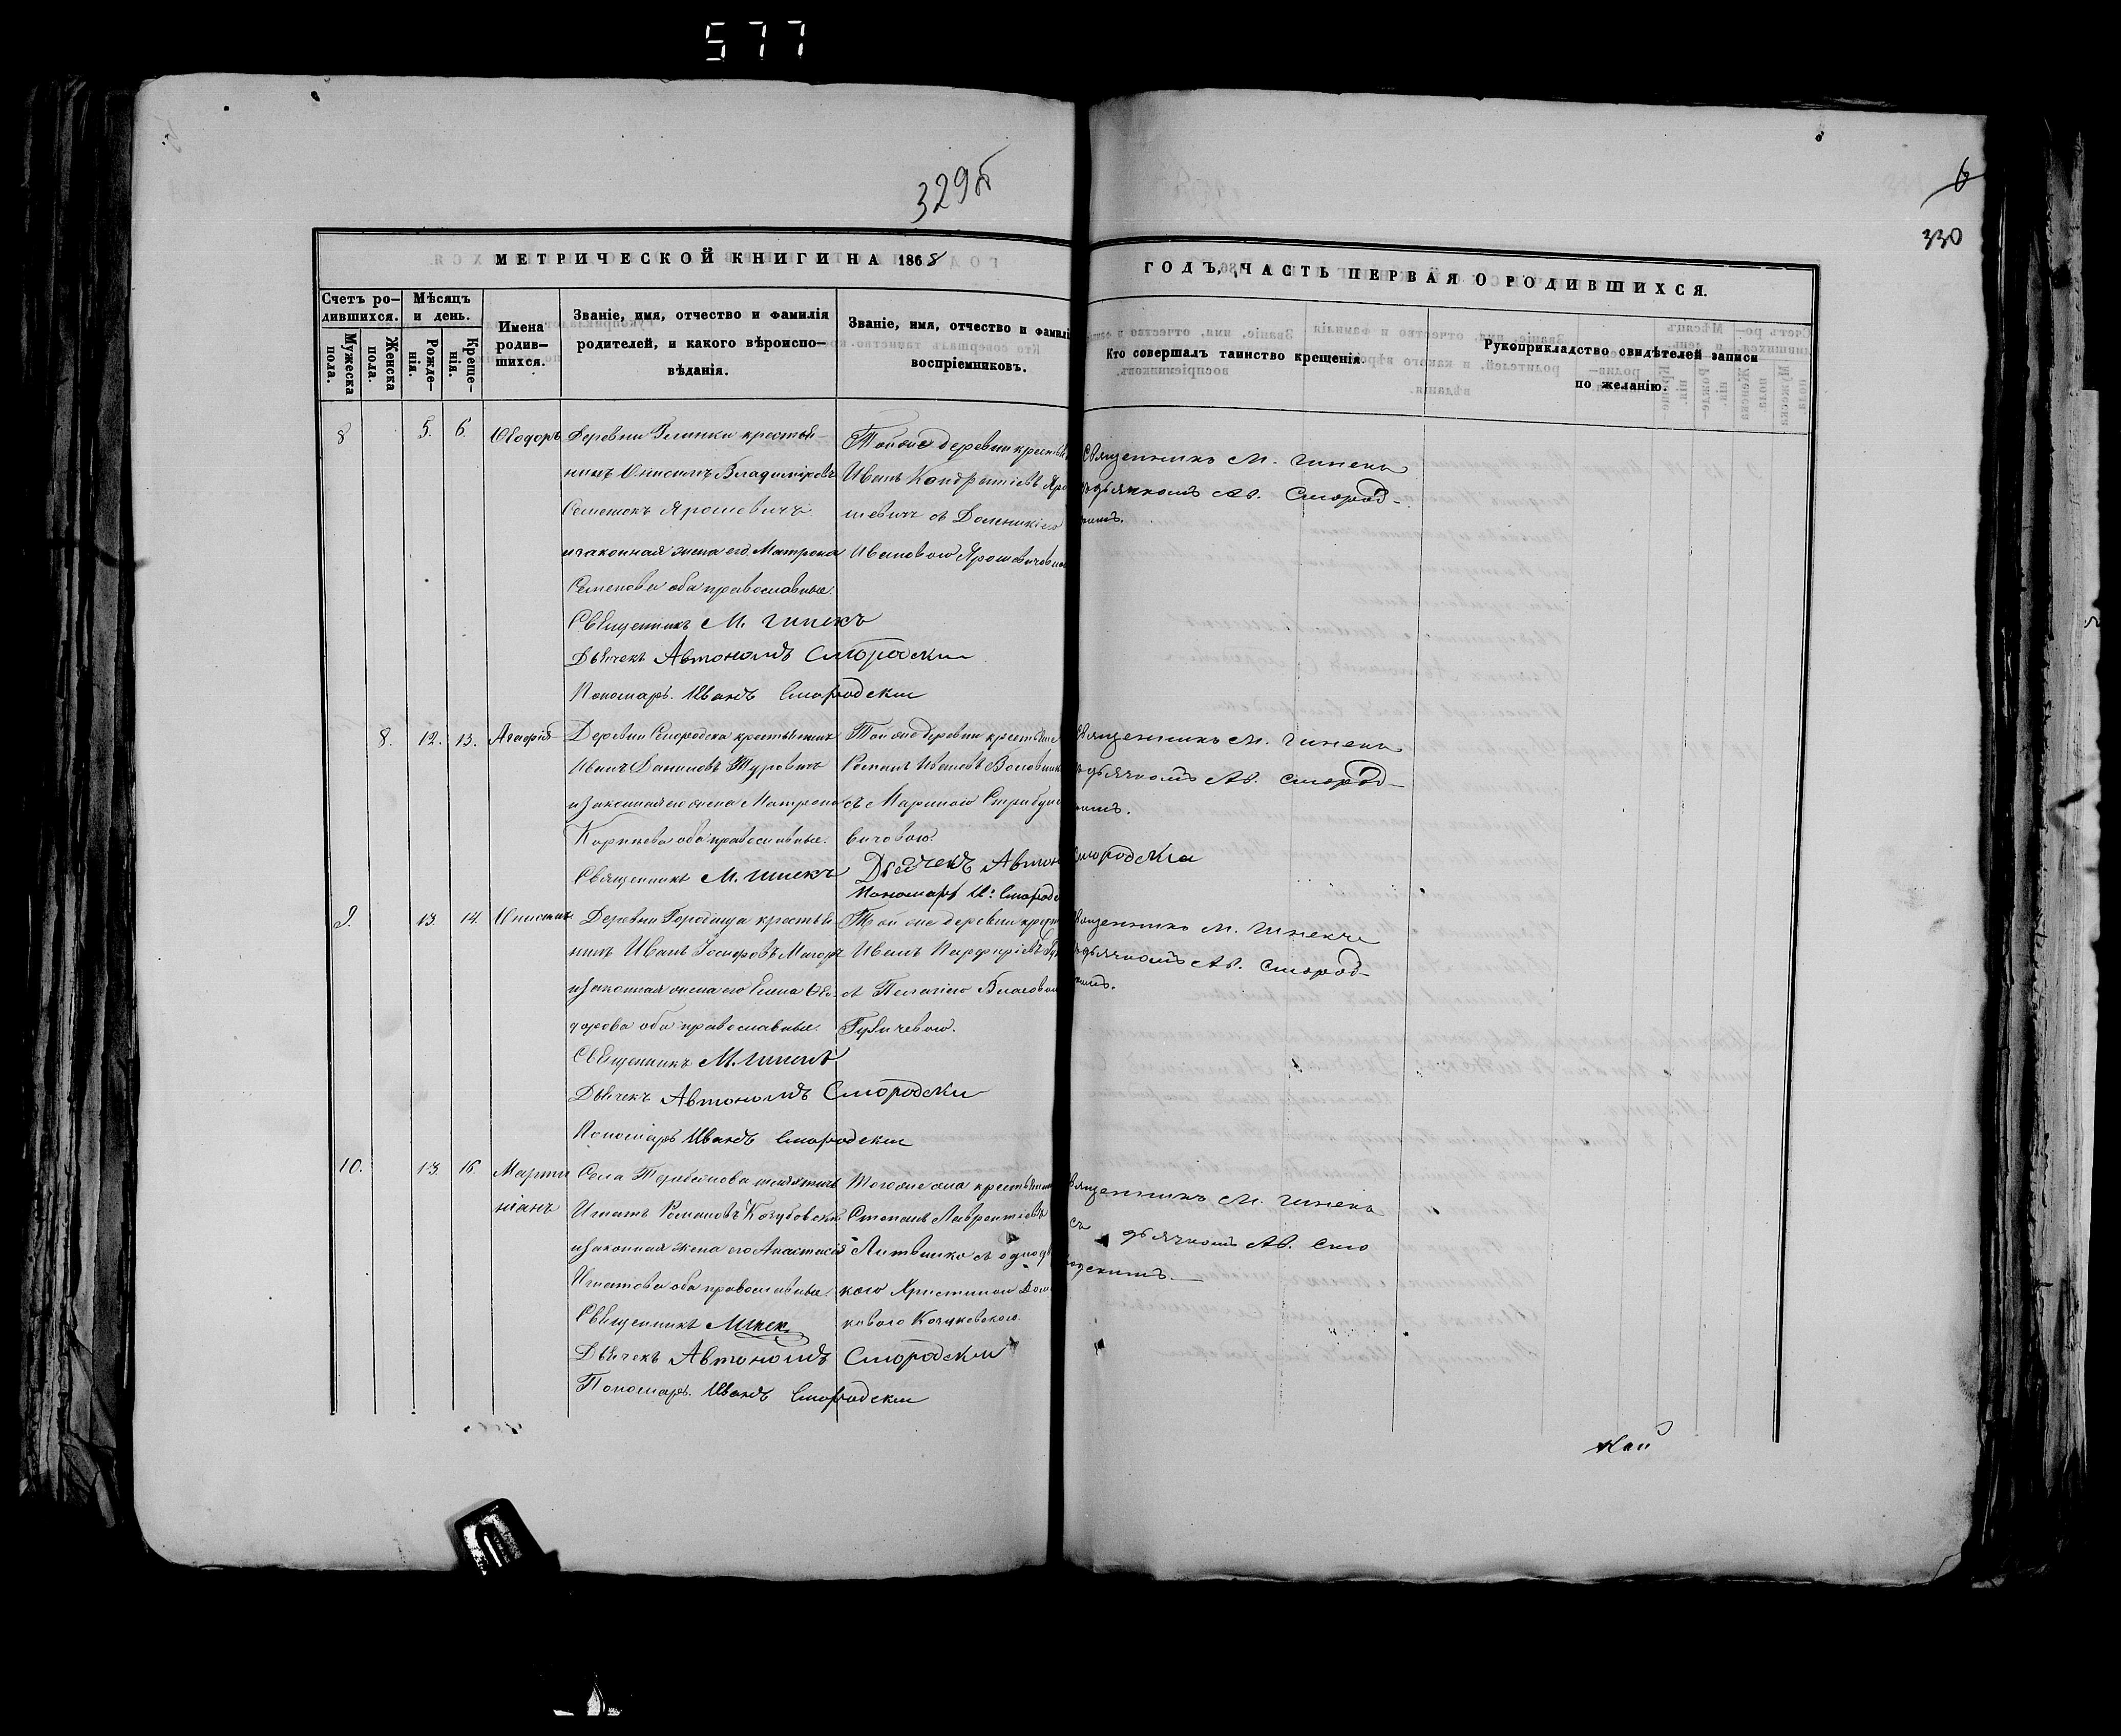 577
329б
6
330
МЕТРИЧЕСКОЙ КНИГИ НА 1868
ГОДЪ, ЧАСТЬ ПЕРВАЯ О РОДИВШИХСЯ.
Счетъ ро-
дившихся.
Мужеска
пола.
Женска
пола.
Мѣсяцъ
и день.
Рожде-
нія.
Креще-
нія.
Имена
родив-
шихся.
Званіе, имя, отчество и фамилія
родителей, и какого вѣроиспо-
вѣданія.
Званіе, имя, отчество и фамилі
воспріемниковъ.
Кто совершалъ таинство крещенія.
Рукоприкладство свидѣтелей записи
по желанію.
8
5.
6.
Ѳеодоръ
Деревни крестья-
нинъ Онисимъ Владиміровъ
Семенюкъ Ярошевичъ
и законная жена его Матрона
Семенова оба православные.
Священникъ М.
Дьячекъ Автономъ Смородски
Пономарь Иванъ Смородски
Той же деревни крестья
Иванъ Кондратіевъ Яро
шевичъ съ Домникіею
Ивановою Ярошевичовою
Священникъ М.
дьячкомъ Ав. Смород-
8.
12.
13.
Агафія
Деревни Смородска крестьянинъ
Иванъ Даниловъ Туровичъ
и законная его жена Матрона
Карпова оба православные.
Священникъ М.
Той же деревни крестьян
Романъ Ивановъ
съ Мариною
вичовою.
Дьячекъ Автон Смородски
Пономарь И: Смородс
Священникъ М.
дьячкомъ Ав. Смород-
9.
13.
14.
Онисимъ
Деревни Городища крестья-
нинъ Иванъ Іосифовъ
и законная жена его Елена Ѳео-
дорова оба православные.
Священникъ М.
Дьячекъ Автономъ Смородски
Пономарь Иванъ Смородски
Той же деревни крест
Иванъ Порфиріевъ
съ Пелагіею Власовою
Священникъ М.
дьячкомъ Ав. Смород-
10.
13.
16.
Марти
ніанъ
Села
Игнатъ Романовъ
и законная жена его Анастасія
Игнатова оба православные.
Священникъ
Дьячекъ Автономъ Смородски
Пономарь Иванъ Смородски
Того же села крестьянин
Степанъ Лаврентіевъ
Литвинко съ однод
кою Христиною
Священникъ М.
съ дьячкомъ Ав. Смо
родскимъ.